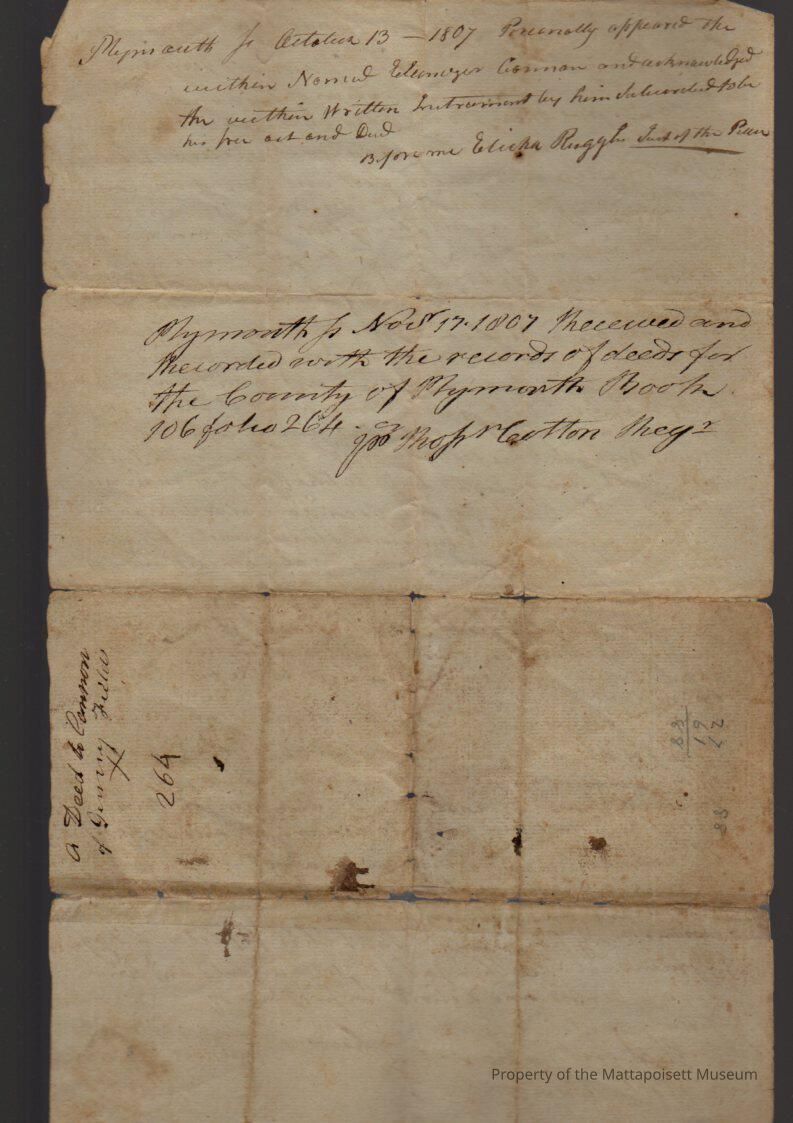 Plymouth ss October 13 - 1807 Personally appeared the
within Named Ebenezer Cannon and acknowledged
the within Written Instrument by him Subscribed to be
his free act and Deed
Before me Elisha Ruggles Just of the Peace
Plymouth ss Novr 17. 1807 Received and
Recorded with the records of deeds for
the County of Plymouth Book
106 folio 264. Rossr Cotton Regr
a Deed to Cannon
of Field
264
83
19
22
83
Property of the Mattapoisett Museum